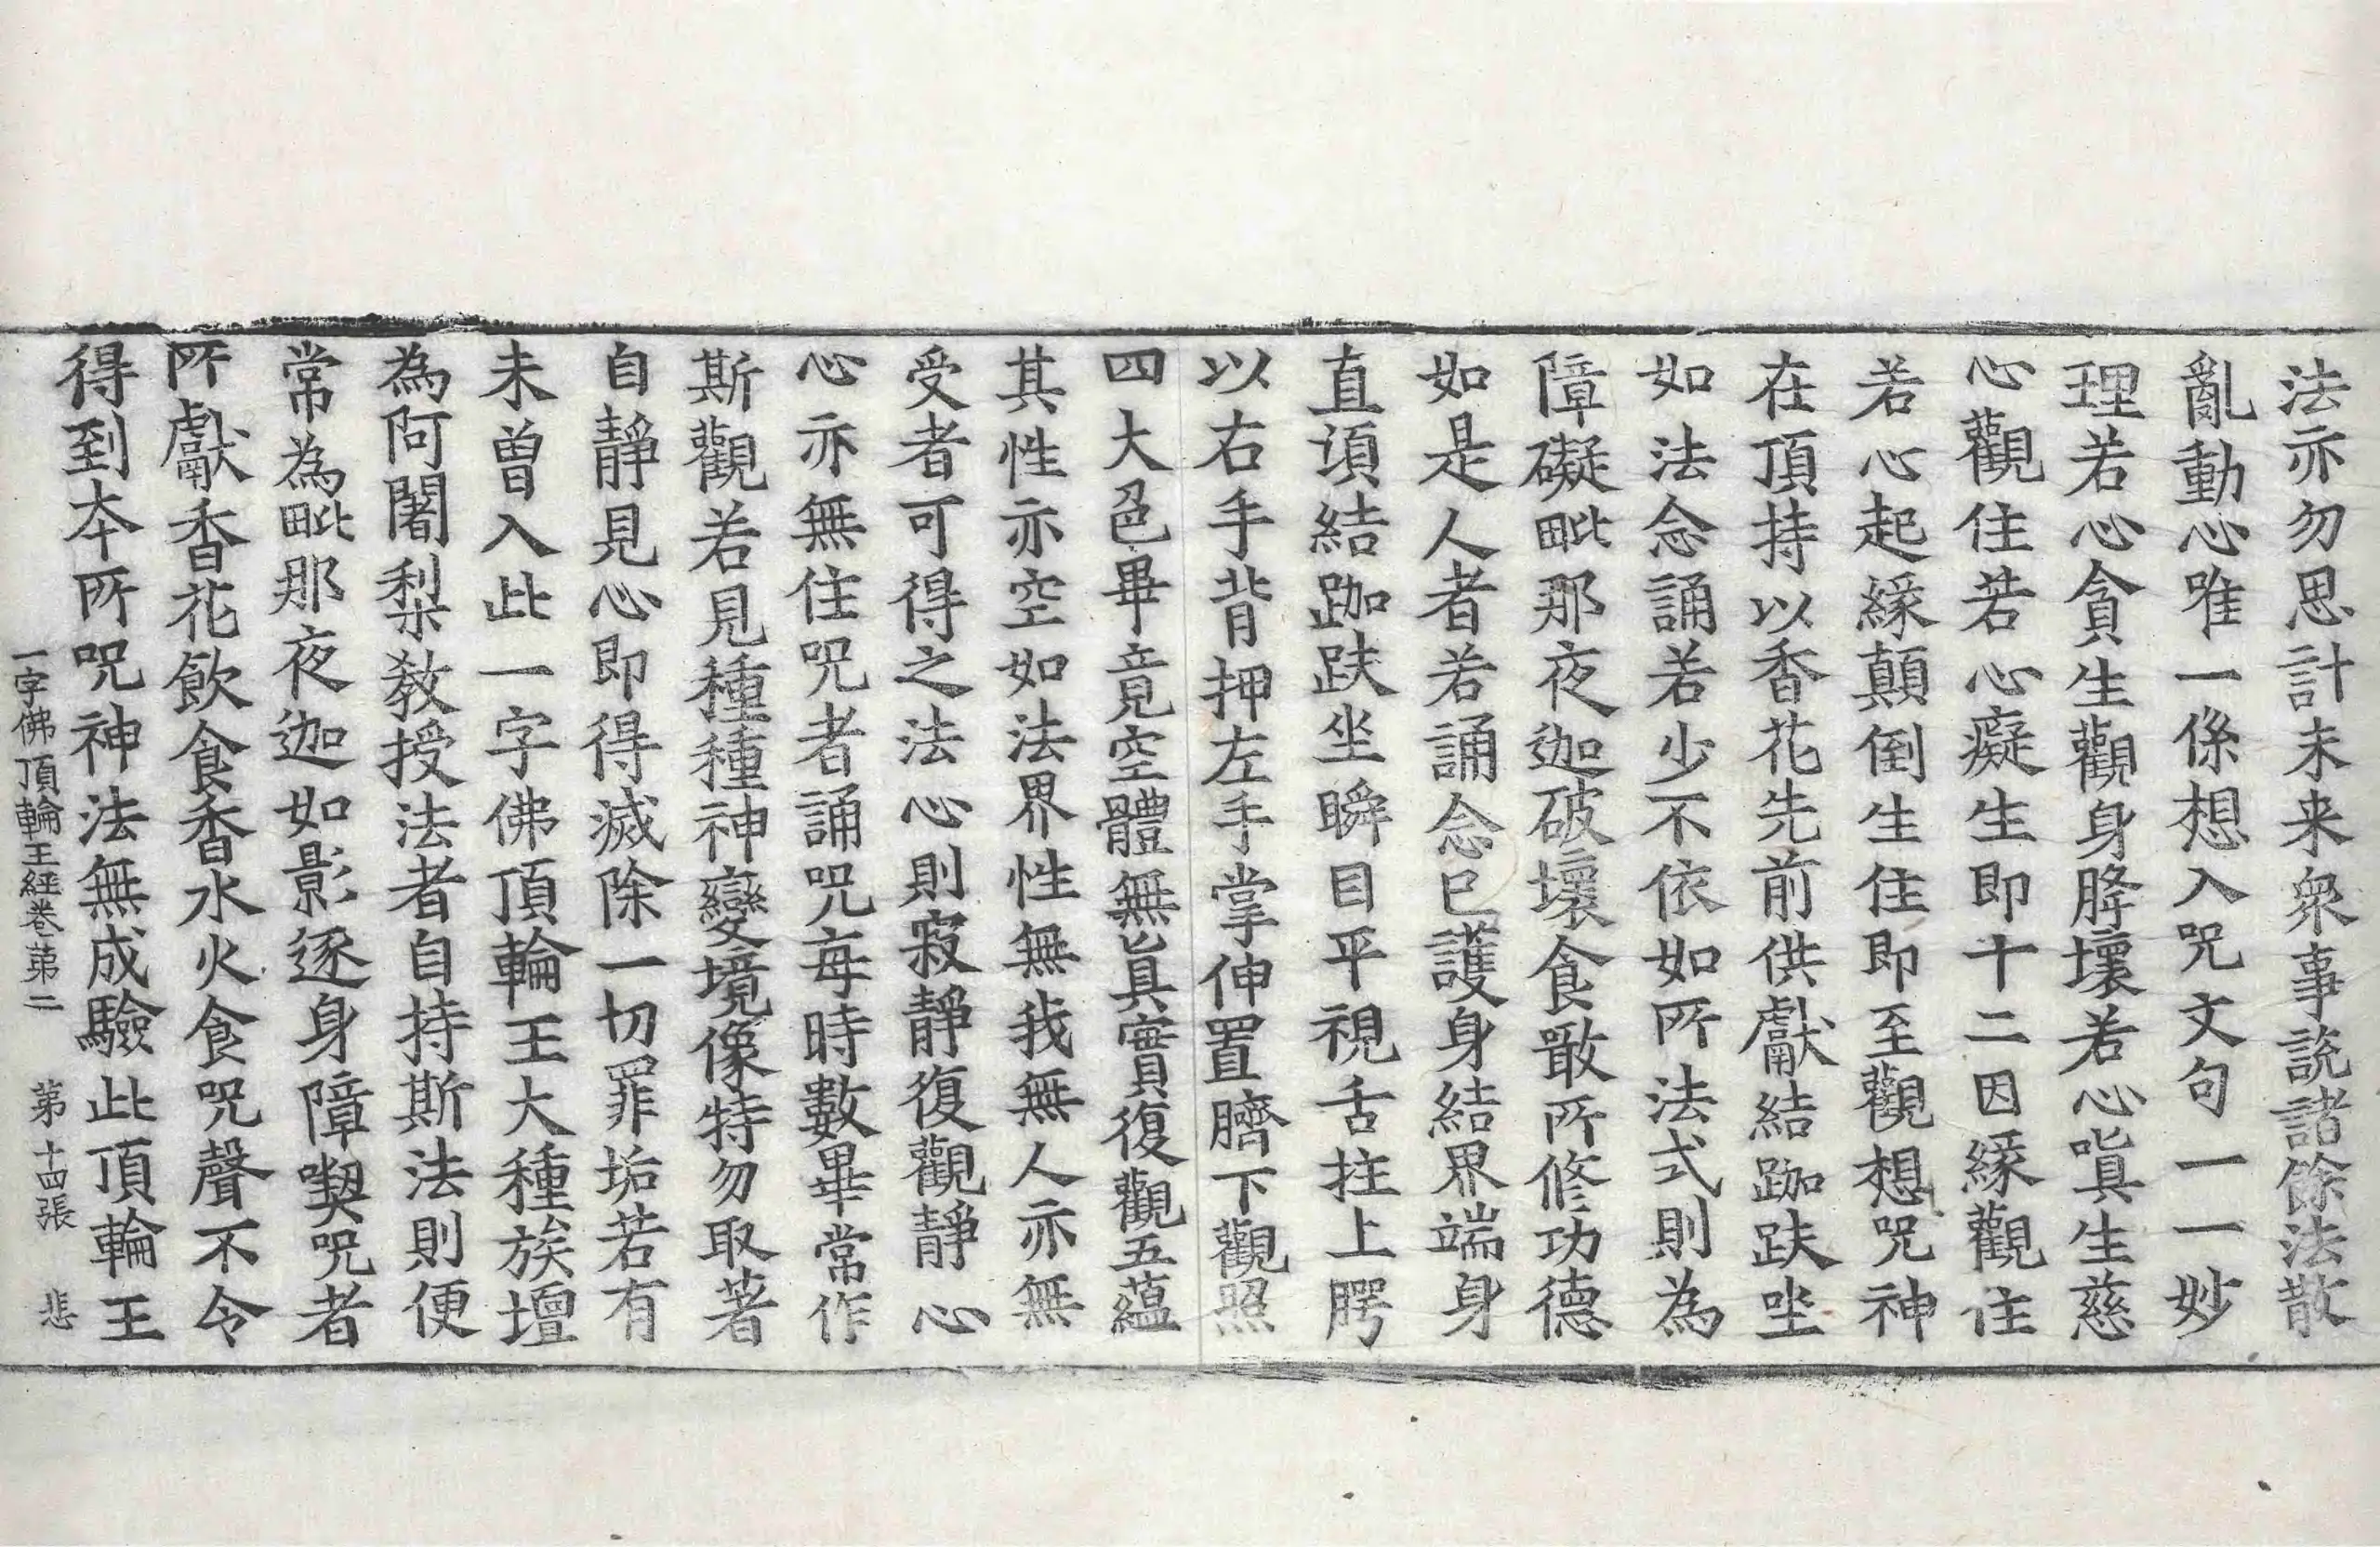 法亦勿思計未来衆事說諸餘法散
亂動心唯一係想入咒文句一一妙
理若心貪生觀身胮壞若心嗔生慈
心觀住若心癡生即十二因緣觀住
若心起緣顛倒生住即至觀想咒神
在頂持以香花先前供獻結跏趺坐
如法念誦若少不依如所法式則為
障礙毗那夜迦破壞食噉所修功德
如是人者若誦念已護身結界端身
直項結跏趺坐瞬目平視舌拄上腭
以右手背押左手掌伸置臍下觀照
四大色畢竟空體無真實復觀五蘊
其性亦空如法界性無我無人亦無
受者可得之法心則寂靜復觀靜心
心亦無住咒者誦咒每時數畢常作
斯觀若見種種神變境像特勿取著
自靜見心即得滅除一切罪垢若有
未曾入此一字佛頂輪王大種族壇
為阿闍梨教授法者自持斯法則便
常為毗那夜迦如影逐身障喫咒者
所獻香花飲食香水火食咒聲不令
得到本所咒神法無成驗此頂輪王
一字佛頂輪王經卷第二 第十四張 悲